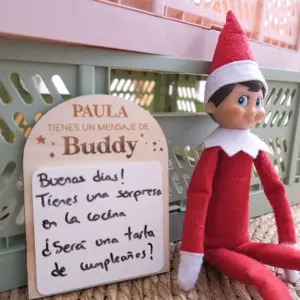 PAULA
TIENES UN MENSAJE DE
Buddy
Buenos dias!
Tienes una sorpresa
en la cocina
¿Será una tarta
de cumpleaños?